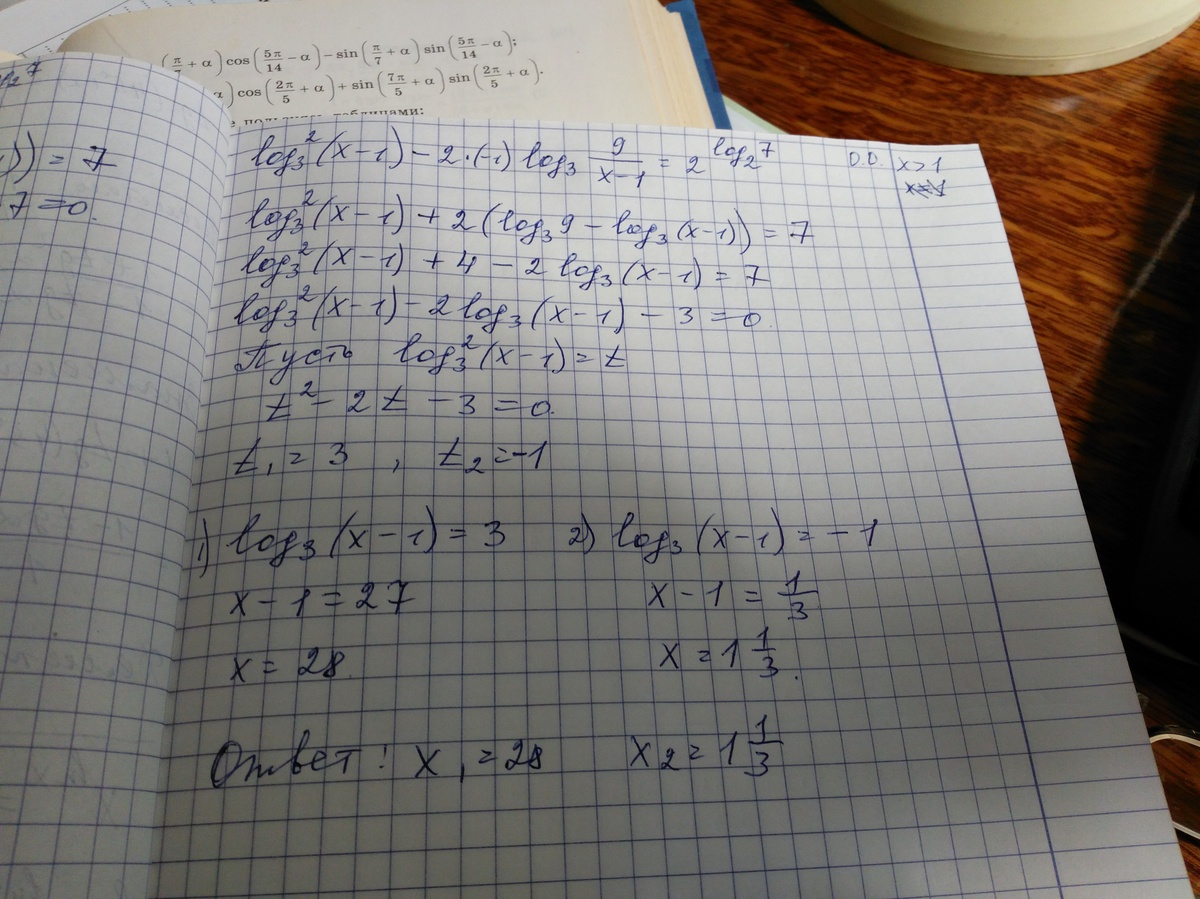 (π/7 + α) cos(5π/14 − α) − sin(π/7 + α) sin(5π/14 − α);
α) cos(2π/5 + α) + sin(7π/5 + α) sin(2π/5 + α).
таблицами:
7
)) = 7
7 = 0.
log₃²(x−1) − 2·(−1) log₃ 9/(x−1) = 2^(log₂7) О.О. x > 1
log₃²(x−1) + 2(log₃9 − log₃(x−1)) = 7
log₃²(x−1) + 4 − 2 log₃(x−1) = 7
log₃²(x−1) − 2 log₃(x−1) − 3 = 0.
Пусть log₃²(x−1) = t
t² − 2t − 3 = 0.
t₁ = 3 , t₂ = −1
1) log₃(x−1) = 3 2) log₃(x−1) = −1
x − 1 = 27 x − 1 = 1/3
x = 28. x = 1 1/3.
Ответ: x₁ = 28 x₂ = 1 1/3